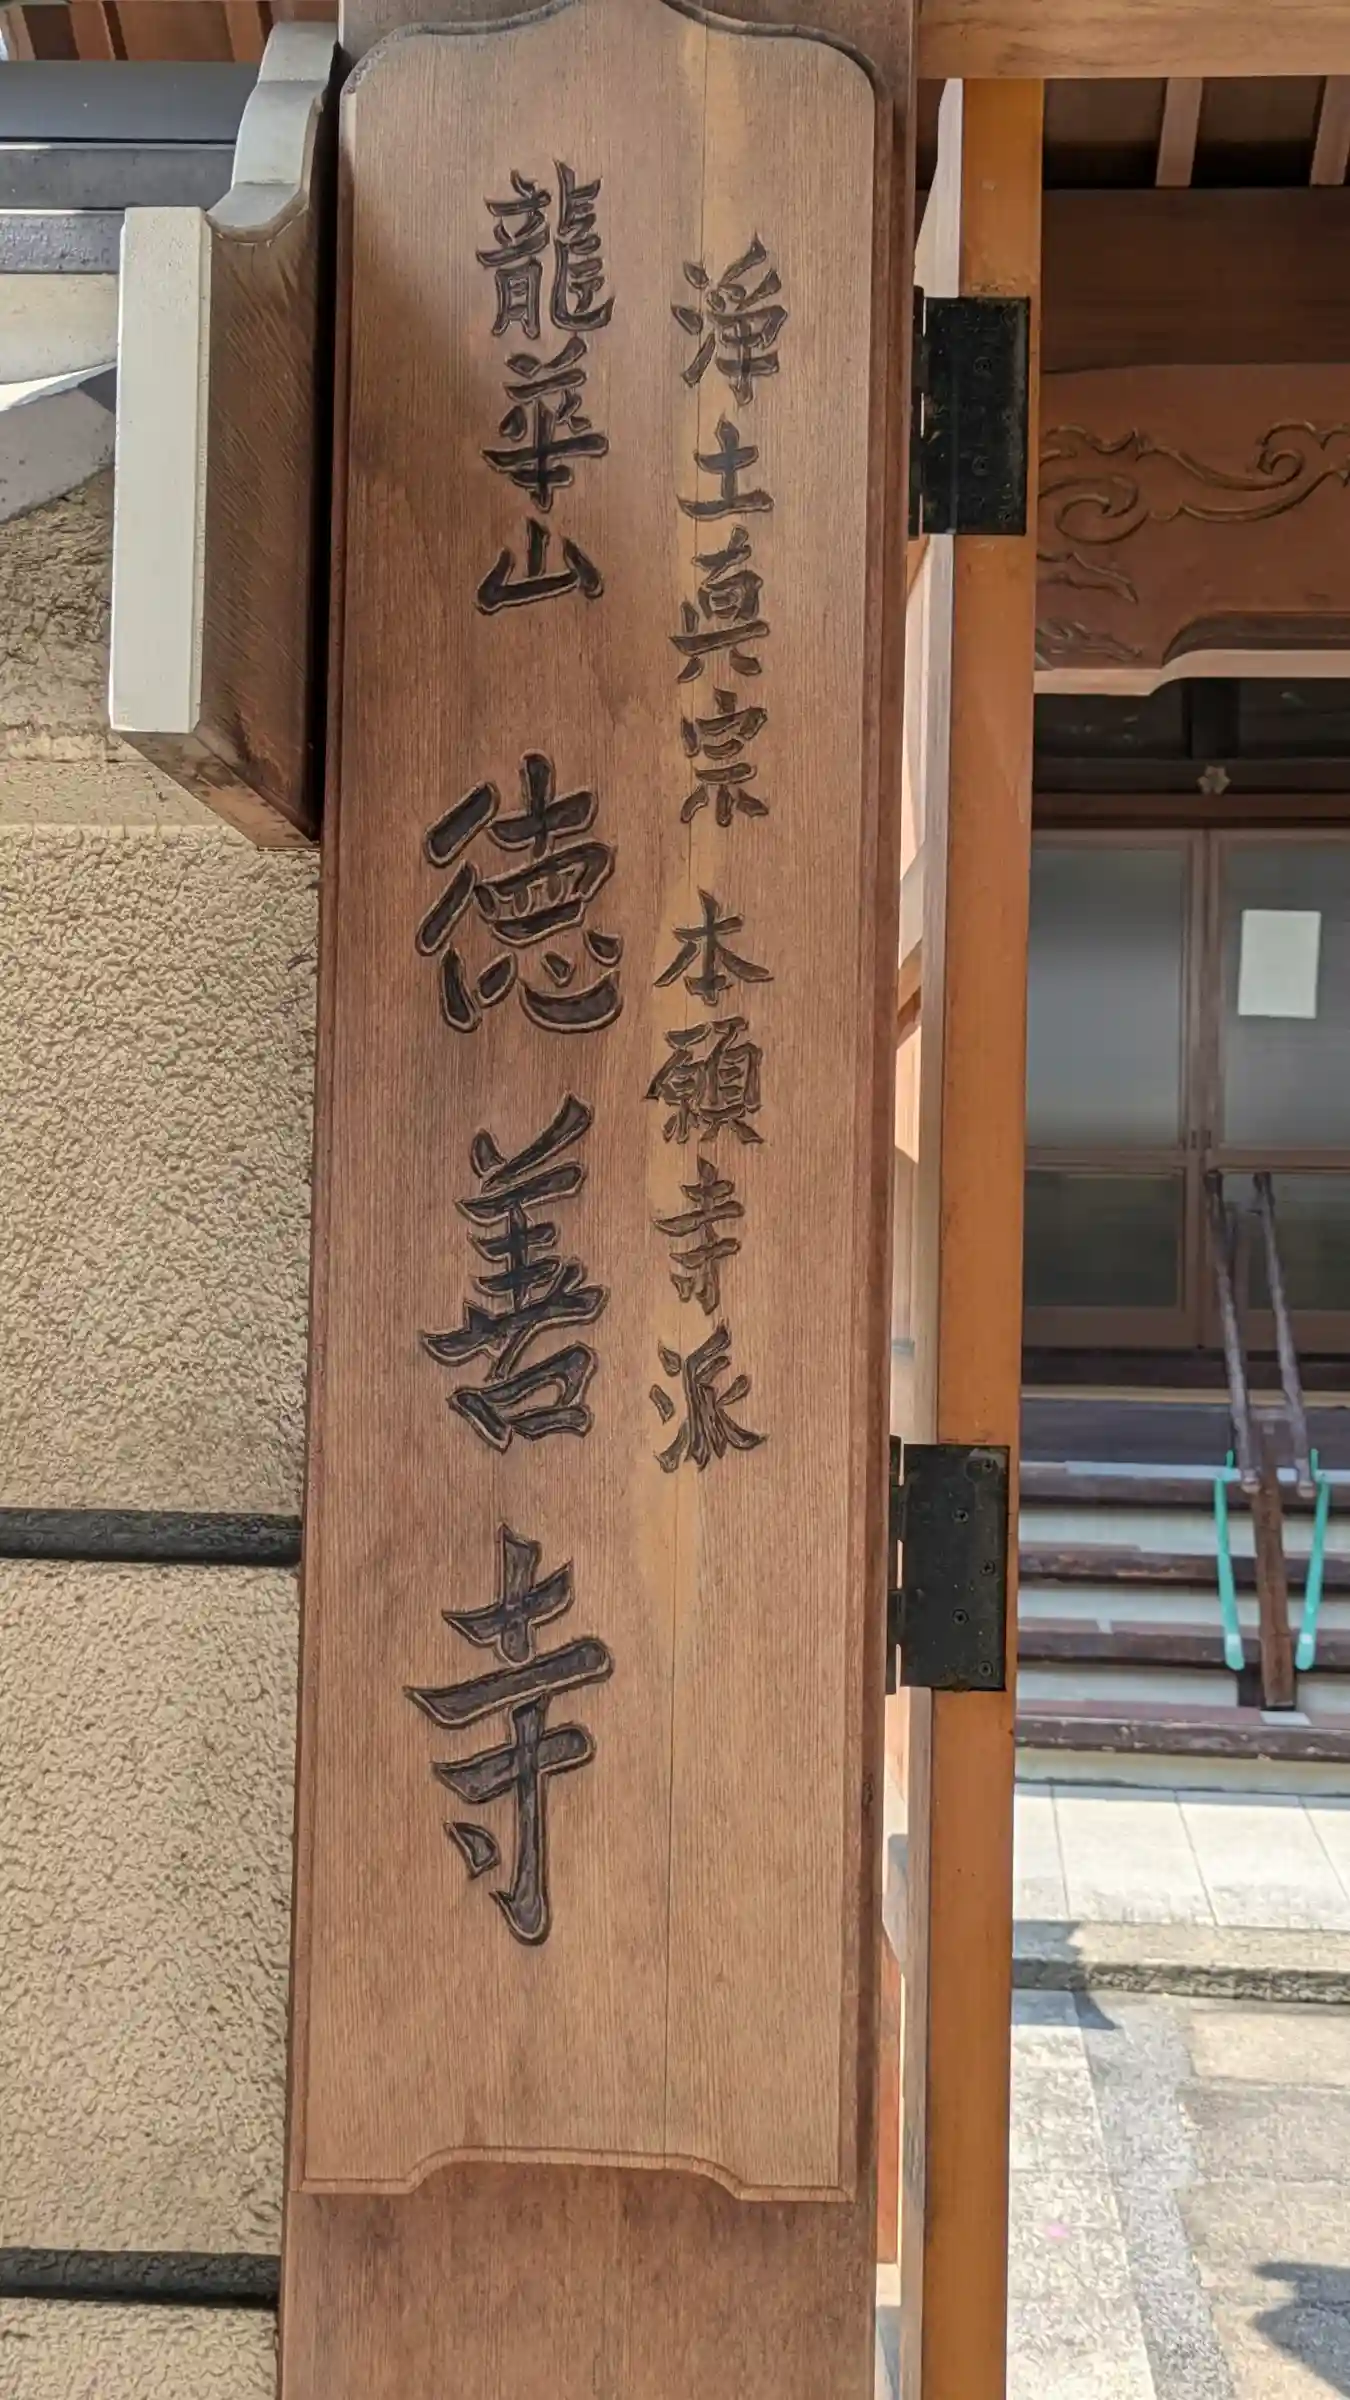 浄土真宗 本願寺派
龍華山 徳善寺